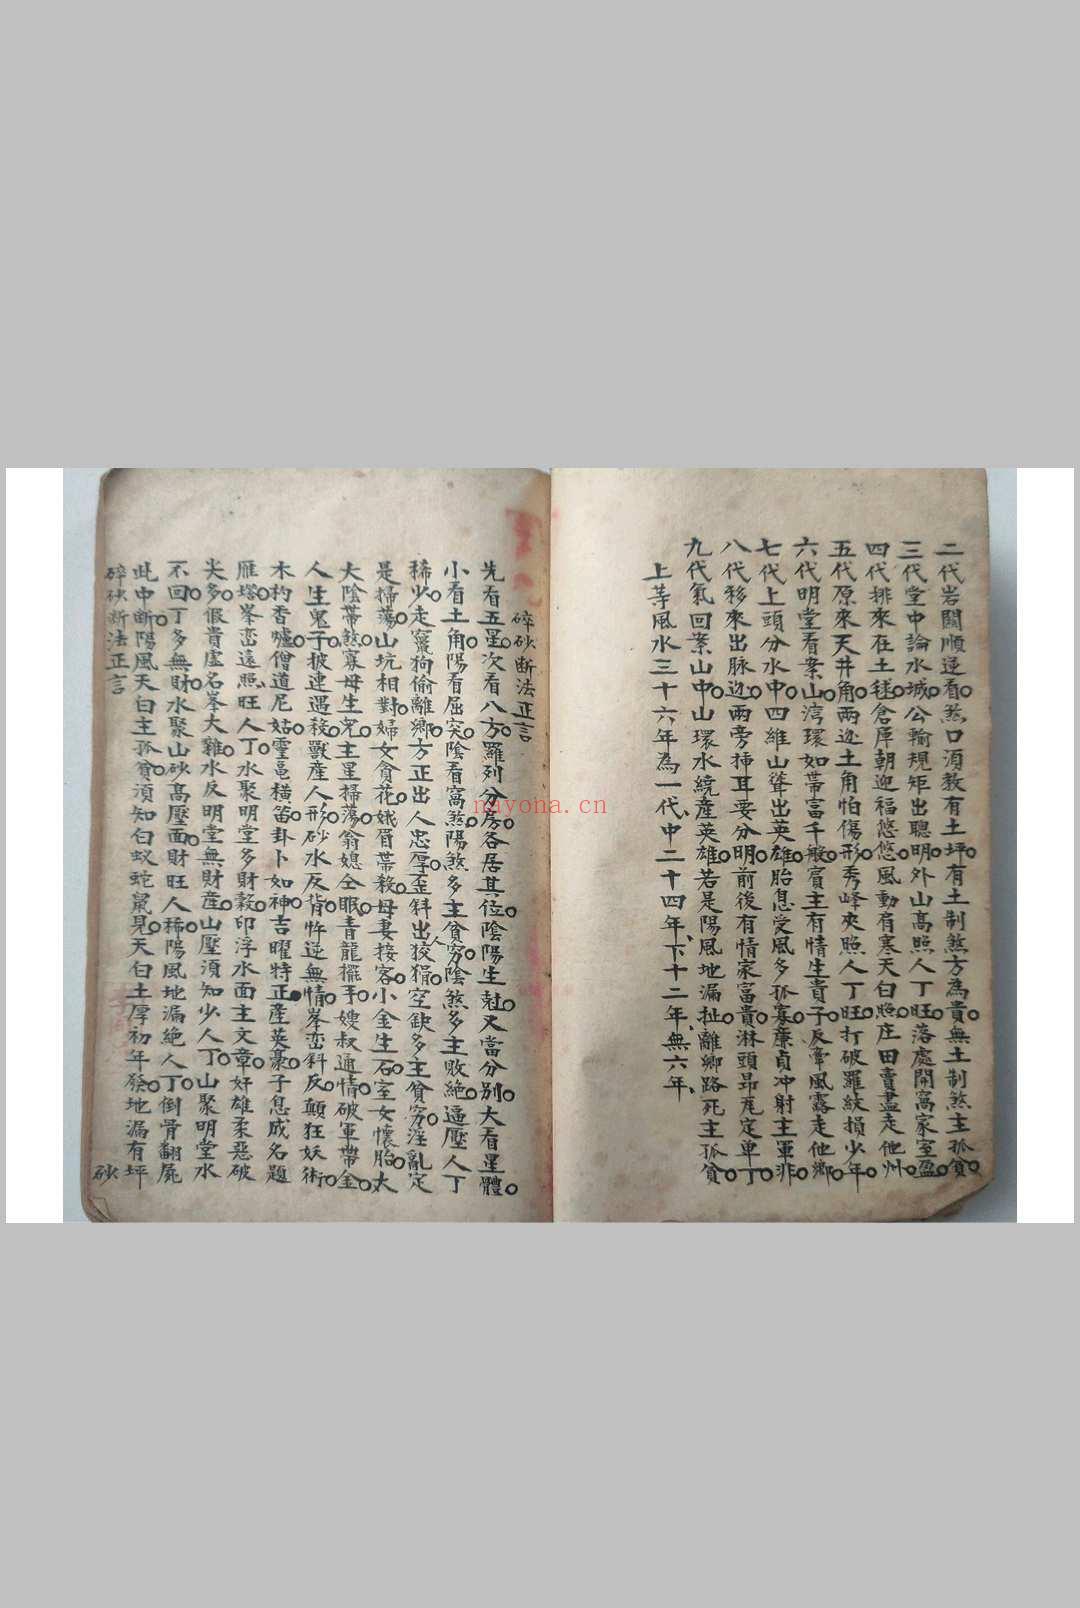 二代岩關順逆看煞口須教有土坪有土制煞方為貴無土制煞主孤貧
三代堂中論水城公輸規矩出聰明外山高照人丁旺落處開窩家室盈
四代排來在土毬倉庫朝迎福悠悠風動肩寒天白照庄田賣盡走他州
五代原來天井角兩边土角怕傷形秀峰夾照人丁旺打破羅紋損少年
六代明堂看案山湾環如帶富千般賓主有情生貴子反牽風露走他鄉
七代上頭分水中四維山聳出英雄胎息受風多孤寡廉貞冲射主軍非
八代移來出脉边兩旁揷耳要分明前後有情家富貴淋頭昂瓦定单丁
九代氣回案山中山環水繞產英雄若是陽風地漏扯離鄉路死主孤貧
上等風水三十六年為一代中二十四年下十二年無六年
碎砂断法正言
先看五星次看八方羅列分房各居其位陰陽生尅又當分别大看星體
小看土角陽看屈突陰看窩煞陽煞多主貧窮陰煞多主敗絕逼壓人丁
稀少走竄狗偷離鄉方正出人忠厚歪斜出狡猾空缺多主貧穷淫亂定
是掃蕩山坑相對婦女貪花娥眉帶殺母妻接客小金生石室女懷胎太
大陰帶煞寡母生兒主星掃蕩翁媳仝眠青龍擺手嫂叔通情破軍帶金
人生鬼子披連遇殺獸產人形砂水反背忤逆無情峯峦斜反顛狂妖術
木杓香爐僧道尼姑靈龟横笛卦卜如神吉曜特正產英豪子息成名題
雁塔峯峦遠照旺人丁水聚明堂多財穀印浮水面主文章奸雄柔惡破
尖多假貴虛名峯大雜水反明堂無財產山壓須知少人丁山聚明堂水
不回丁多無財水聚山砂高壓面財旺人稀陽風地漏絕人丁倒骨翻屍
此中断陽風天白主孤貧須知白蚁蛇鼠見天白土厚初年發地漏有坪
碎砂断法正言
砂
nayona.cn